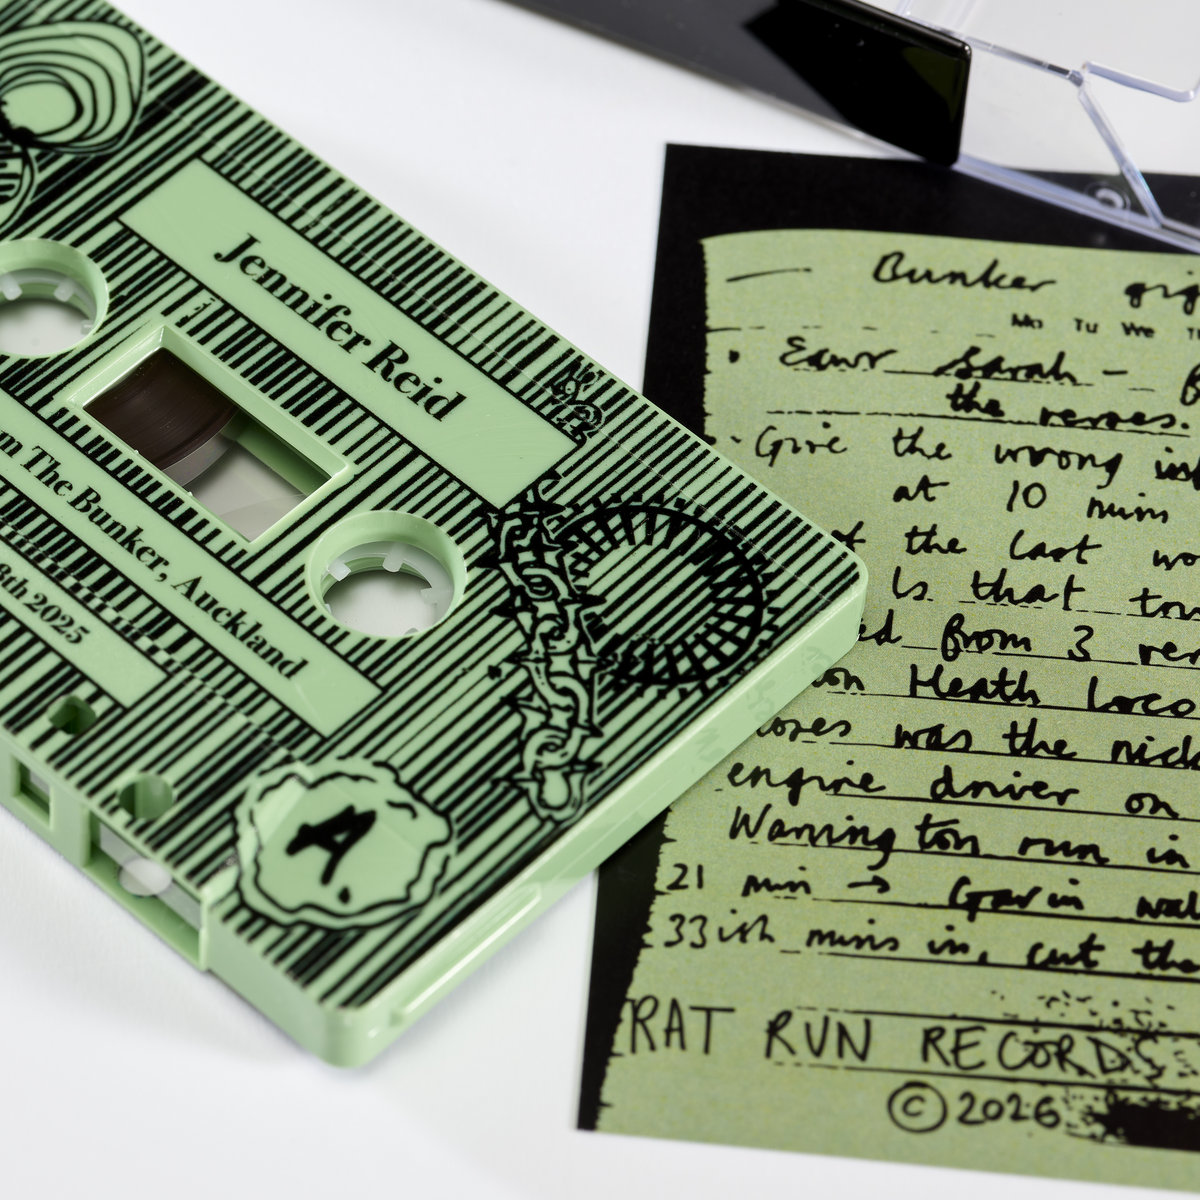 Jennifer Reid
The Bunker, Auckland
8th 2025
A.
Bunker gig
Mo Tu We
Sarah -
the verses.
Give the wrong
at 10 mins
the last
Is that
from 3
Heath Loco
was the
engine driver on
Warrington run in
21 min → Gavin
33ish mins in, cut
RAT RUN RECORDS
© 2026